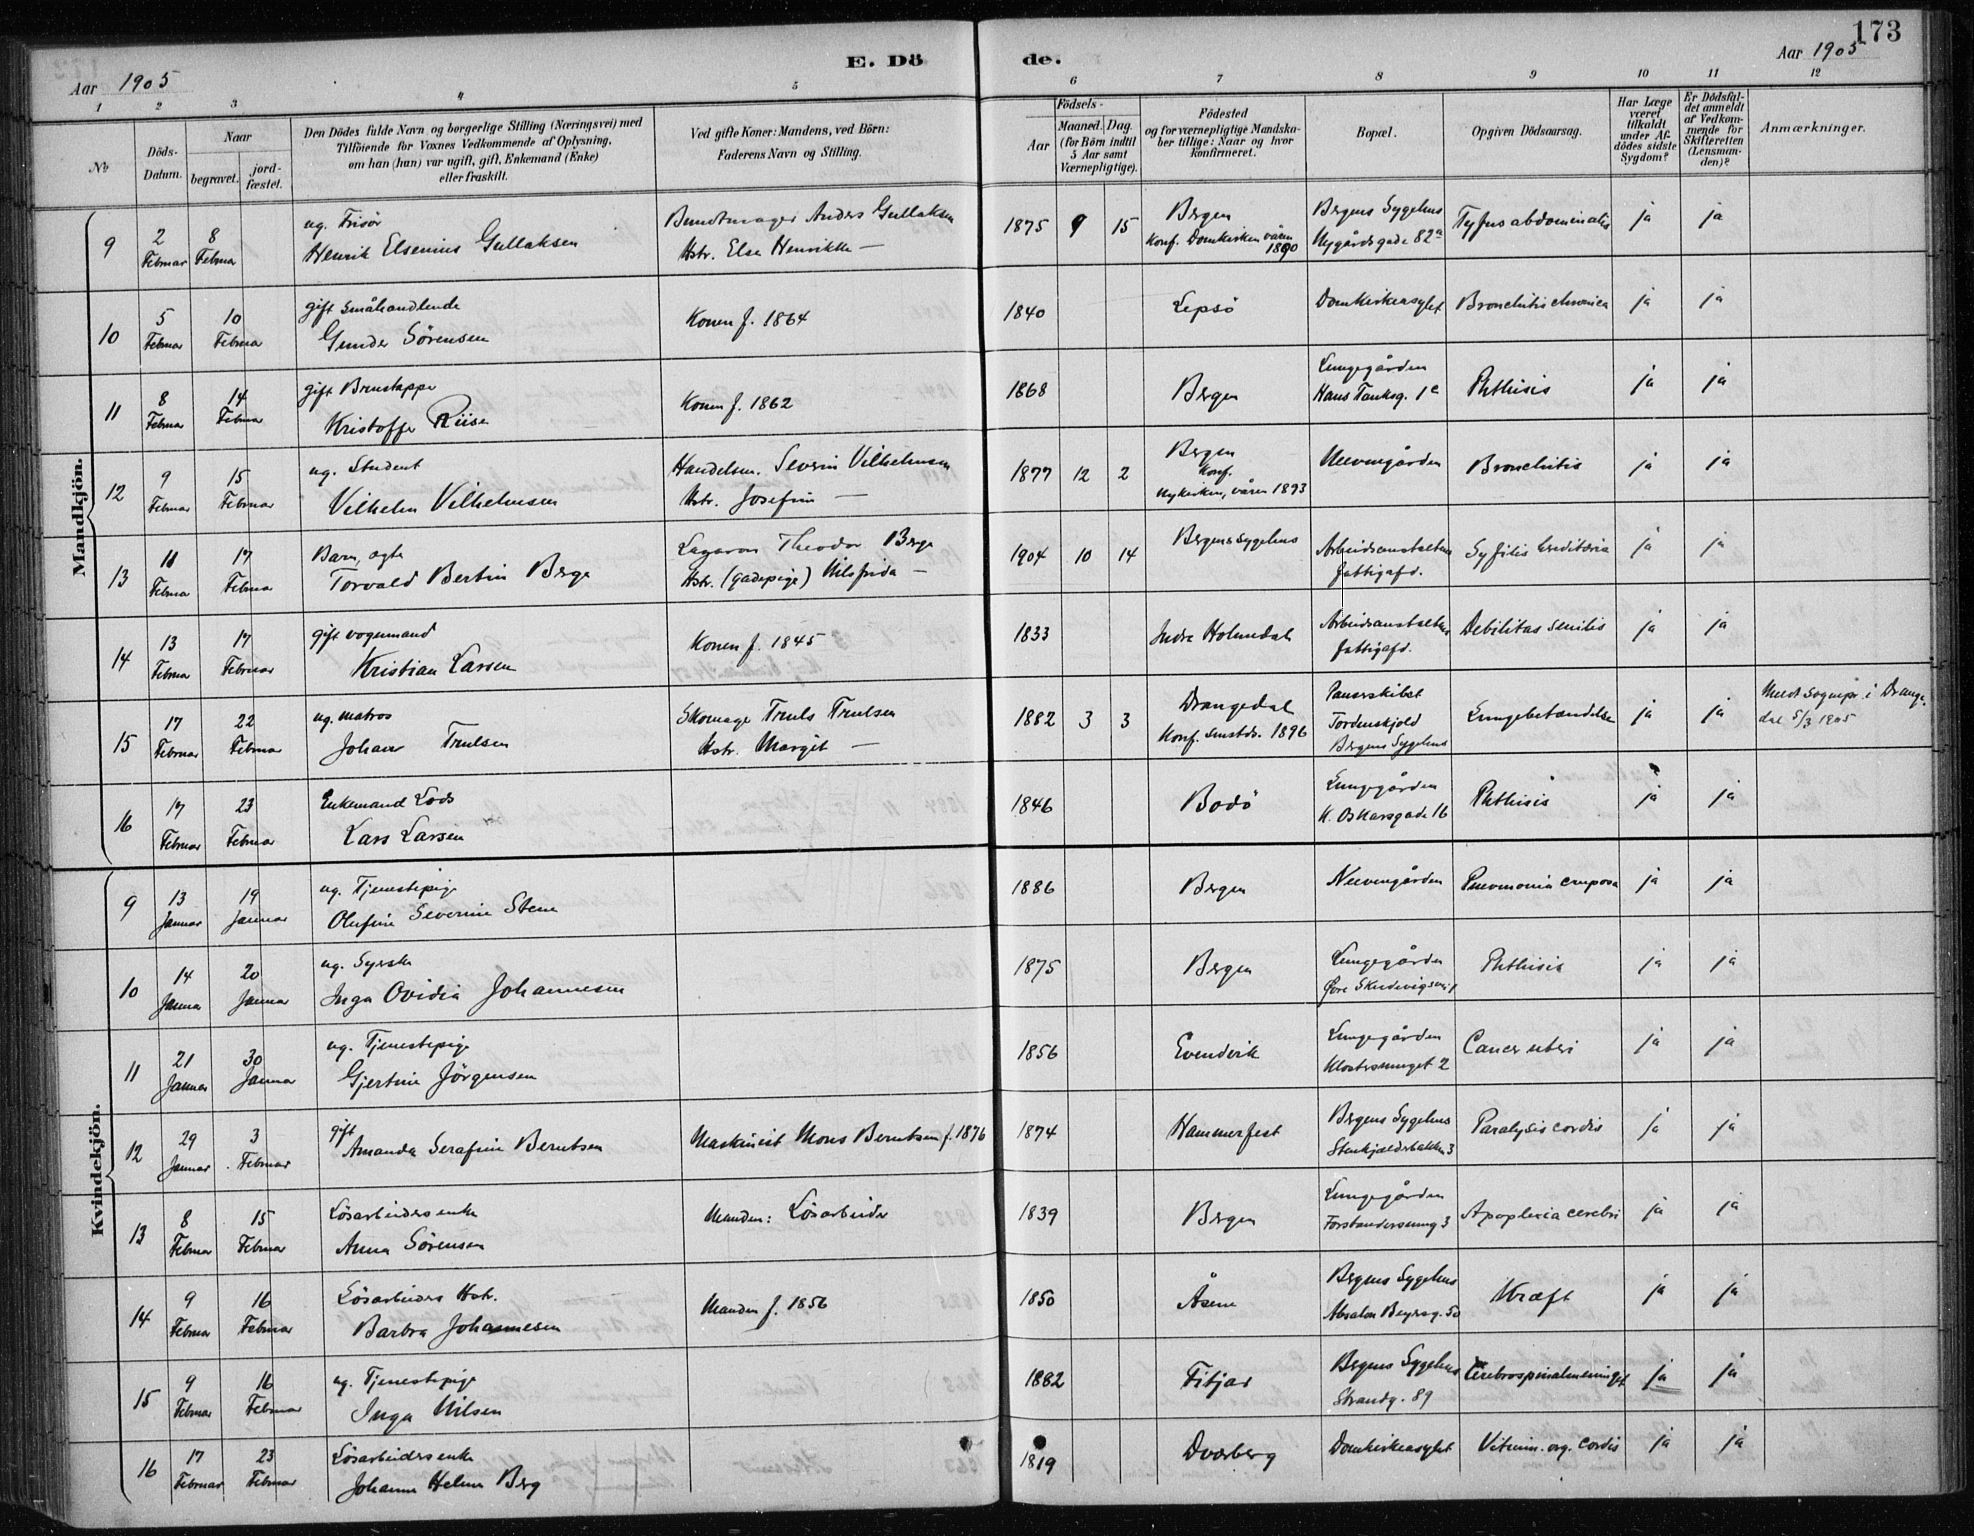 173
E. Dö de.
Aar 1905
Aar 1905
1 2 3 4 5 6 7 8 9 10 11 12
No
Döds-Datum.
Naar
begravet.
jord-fæstet.
Den Dödes fulde Navn og borgerlige Stilling (Næringsvei) med
Tilföiende for Voxnes Vedkommende af Oplysning,
om han (hun) var ugift, gift, Enkemand (Enke)
eller fraskilt.
Ved gifte Koner: Mandens, ved Börn:
Faderens Navn og Stilling.
Födsels-
Aar
Maaned. Dag.
(for Börn indtil
5 Aar samt
Værnepligtige).
Födested
og for værnepligtige Mandska-
ber tillige: Naar og hvor
konfirmeret.
Bopæl.
Opgiven Dödsaarsag.
Har Læge
været
tilkaldt
under Af-
dödes sidste
Sygdom?
Er Dödsfal-
det anmeldt
af Vedkom-
mende for
Skifteretten
(Lensman-
den)?
Anmærkninger.
Mandkjön.
9 2 Februar 8 Februar ug. Frisör
Henrik Elsenius Gullaksen
Bundtmager Anders Gullaksen
Hstr. Else Henrikke —
1875 9 15 Bergen
Konf. Domkirken våren 1890
Bergens Sygehus
Nygårdsgade 82a
Tyfus abdominalis ja ja
10 5 Februar 10 Februar gift Småhandlende
Gunder Sörensen
Konen f. 1864
1840 Lepsö Domkirkeasylet Bronchitis chronica ja ja
11 8 Februar 14 Februar gift
Kristoffer Riise
Konen f. 1862
1868 Bergen Lungegården
Hans Tanksg. 1c
Phthisis ja ja
12 9 Februar 15 Februar ug. Student
Vilhelm Vilhelmsen
Handelsm. Severin Vilhelmsen
Hstr. Josefine —
1877 12 2 Bergen
Konf.
Nykirken, våren 1893
Neevengården Bronchitis ja ja
13 11 Februar 17 Februar Barn, ægte
Torvald Bertin Berge
Theodor Berge
Hstr. (Gadepige) Nilsfrida —
1904 10 14 Bergens Sygehus Arbeidsanstaltens
fattigafd.
Syfilis hereditaria ja ja
14 13 Februar 17 Februar gift vognmand
Kristian Larsen
Konen f. 1845
1833 Indre Holmedal Arbeidsanstaltens
fattigafd.
Debilitas senilis ja ja
15 17 Februar 22 Februar ug. matros
Johan Trulsen
Skomager Truls Trulsen
Hstr. Margit —
1882 3 3 Drangedal
Konf. smstds. 1896
Panserskibet
Tordenskjold
Bergens Sygehus
Lungebetændelse ja ja
Meldt Sognepr. i Drange-
dal 5/3 1905
16 17 Februar 23 Februar Enkemand Lods
Lars Larsen
1846 Bodö Lungegården
K. Oskarsgade 16
Phthisis ja ja
Kvindekjön.
9 13 Januar 19 Januar ug. Tjenestepige
Olufine Severine Stene
1886 Bergen Neevengården Pneumonia cruposa ja ja
10 14 Januar 20 Januar ug. Syerske
Inga Ovidia Johannesen
1875 Bergen Lungegården
Øvre Skudevigsvei 1
Phthisis ja ja
11 21 Januar 30 Januar ug. Tjenestepige
Gjertine Jörgensen
1856 Evendvik Lungegården
Klostersmuget 2
Cancer uteri ja ja
12 29 Januar 3 Februar gift
Amanda Serafine Berntsen
Maskinist Mons Berntsen f. 1876
1874 Hammerfest Bergens Sygehus
Stenkjældrbakken 3
Paralysis cordis ja ja
13 8 Februar 15 Februar Lösarbeidersenke
Anna Sörensen
Manden: Lösarbeider
1839 Bergen Lungegården
Forstandersmug 3
Apoplexia cerebri ja ja
14 9 Februar 16 Februar Lösarbeiders Hstr.
Barbra Johannesen
Manden f. 1856
1850 Åsene Bergens Sygehus
Absalon Beyersg. 50
Kræft ja ja
15 9 Februar 16 Februar ug. Tjenestepige
Inga Nilsen
1882 Fitjar Bergens Sygehus
Strandg. 89
Cerebrospinalmeningit ja ja
16 17 Februar 23 Februar Lösarbeidersenke
Johanne Helene Berg
1819 Dverberg Domkirkeasylet Vitium. org. cordis ja ja